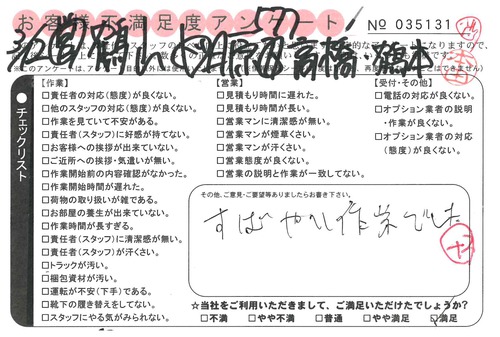 お客様不満足度アンケート
No 035131
チェックリスト
【作業】
□責任者の対応(態度)が良くない。
□他のスタッフの対応(態度)が良くない。
□作業を見ていて不安がある。
□責任者(スタッフ)に好感が持てない。
□お客様への挨拶が出来ていない。
□ご近所への挨拶・気遣いが無い。
□作業開始前の内容確認がなかった。
□作業開始時間が遅れた。
□荷物の取り扱いが雑である。
□お部屋の養生が出来ていない。
□作業時間が長すぎる。
□責任者(スタッフ)に清潔感が無い。
□責任者(スタッフ)が汗くさい。
□トラックが汚い。
□梱包資材が汚い。
□運転が不安(下手)である。
□靴下の履き替えをしてない。
□スタッフにやる気がみられない。
【営業】
□見積もり時間に遅れた。
□見積もり時間が長い。
□営業マンに清潔感が無い。
□営業マンが煙草くさい。
□営業マンが汗くさい。
□営業態度が良くない。
□営業の説明と作業が一致してない。
【受付・その他】
□電話の対応が良くない。
□オプション業者の説明
・作業が良くない。
□オプション業者の対応
(態度)が良くない。
その他、ご意見・ご要望等ありましたらお書き下さい。
すばやい作業でした
☆当社をご利用いただきまして、ご満足いただけたでしょうか?
□不満 □やや不満 □普通 □やや満足 □満足